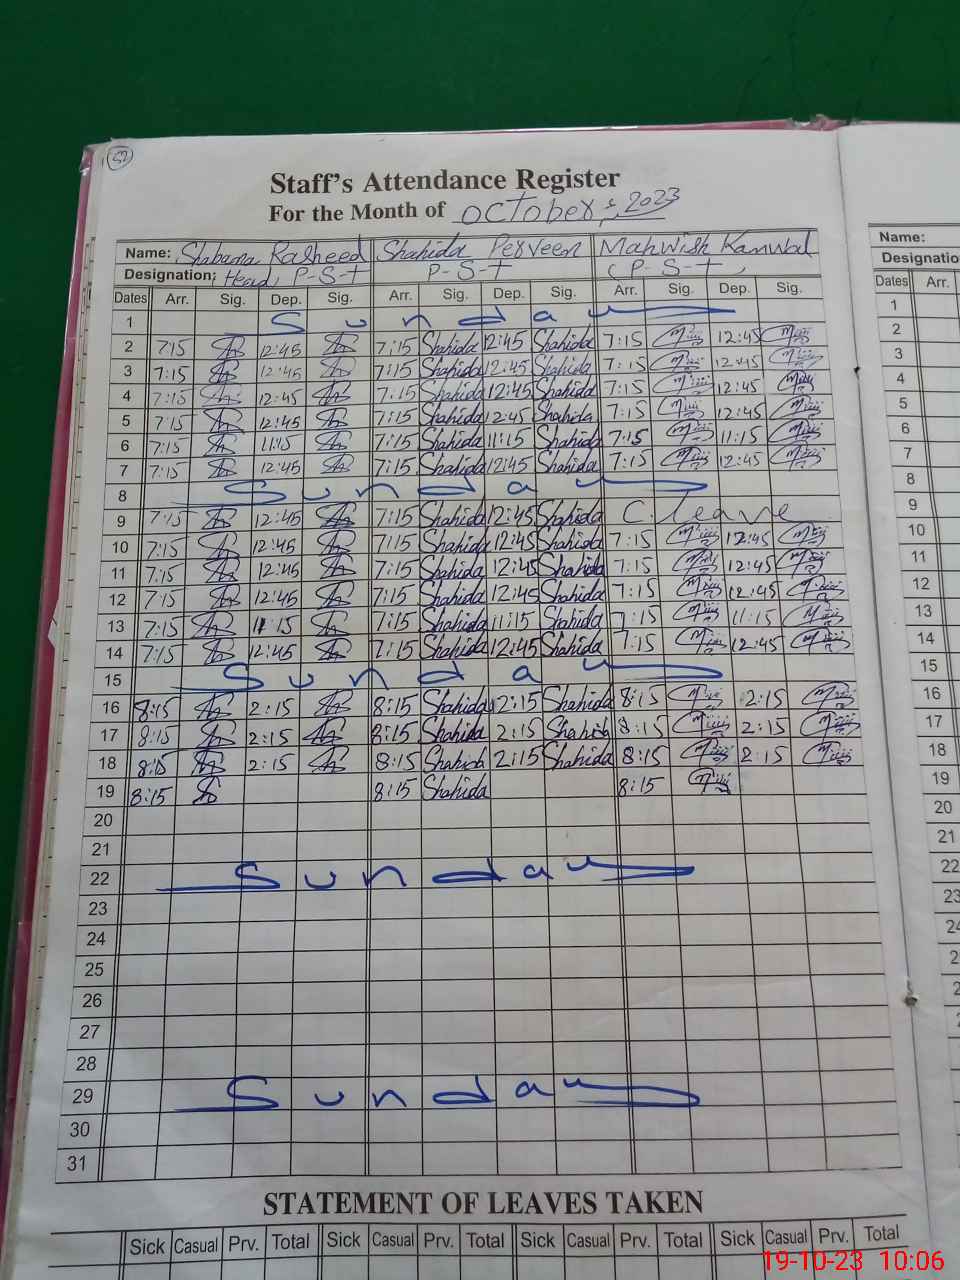 52
Staff's Attendance Register
For the Month of October, 2023
Name: Shabana Rasheed Shahida Perveen Mahwish Kanwal
Designation: Head, P-S-T P-S-T (P-S-T)
Dates Arr. Sig. Dep. Sig. Arr. Sig. Dep. Sig. Arr. Sig. Dep. Sig.
1 Sunday
2 7:15 12:45 7:15 Shahida 12:45 Shahida 7:15 12:45
3 7:15 12:45 7:15 Shahida 12:45 Shahida 7:15 12:45
4 7:15 12:45 7:15 Shahida 12:45 Shahida 7:15 12:45
5 7:15 12:45 7:15 Shahida 12:45 Shahida 7:15 12:45
6 7:15 11:15 7:15 Shahida 11:15 Shahida 7:15 11:15
7 7:15 12:45 7:15 Shahida 12:45 Shahida 7:15 12:45
8 Sunday
9 7:15 12:45 7:15 Shahida 12:45 Shahida C.leave
10 7:15 12:45 7:15 Shahida 12:45 Shahida 7:15 12:45
11 7:15 12:45 7:15 Shahida 12:45 Shahida 7:15 12:45
12 7:15 12:45 7:15 Shahida 12:45 Shahida 7:15 12:45
13 7:15 11:15 7:15 Shahida 11:15 Shahida 7:15 11:15
14 7:15 12:45 7:15 Shahida 12:45 Shahida 7:15 12:45
15 Sunday
16 8:15 2:15 8:15 Shahida 2:15 Shahida 8:15 2:15
17 8:15 2:15 8:15 Shahida 2:15 Shahida 8:15 2:15
18 8:15 2:15 8:15 Shahida 2:15 Shahida 8:15 2:15
19 8:15 8:15 Shahida 8:15
20
21
22 Sunday
23
24
25
26
27
28
29 Sunday
30
31
STATEMENT OF LEAVES TAKEN
Sick Casual Prv. Total Sick Casual Prv. Total Sick Casual Prv. Total
Name:
Designatio
Dates Arr.
1
2
3
4
5
6
7
8
9
10
11
12
13
14
15
16
17
18
19
20
21
22
23
24
19-10-23 10:06